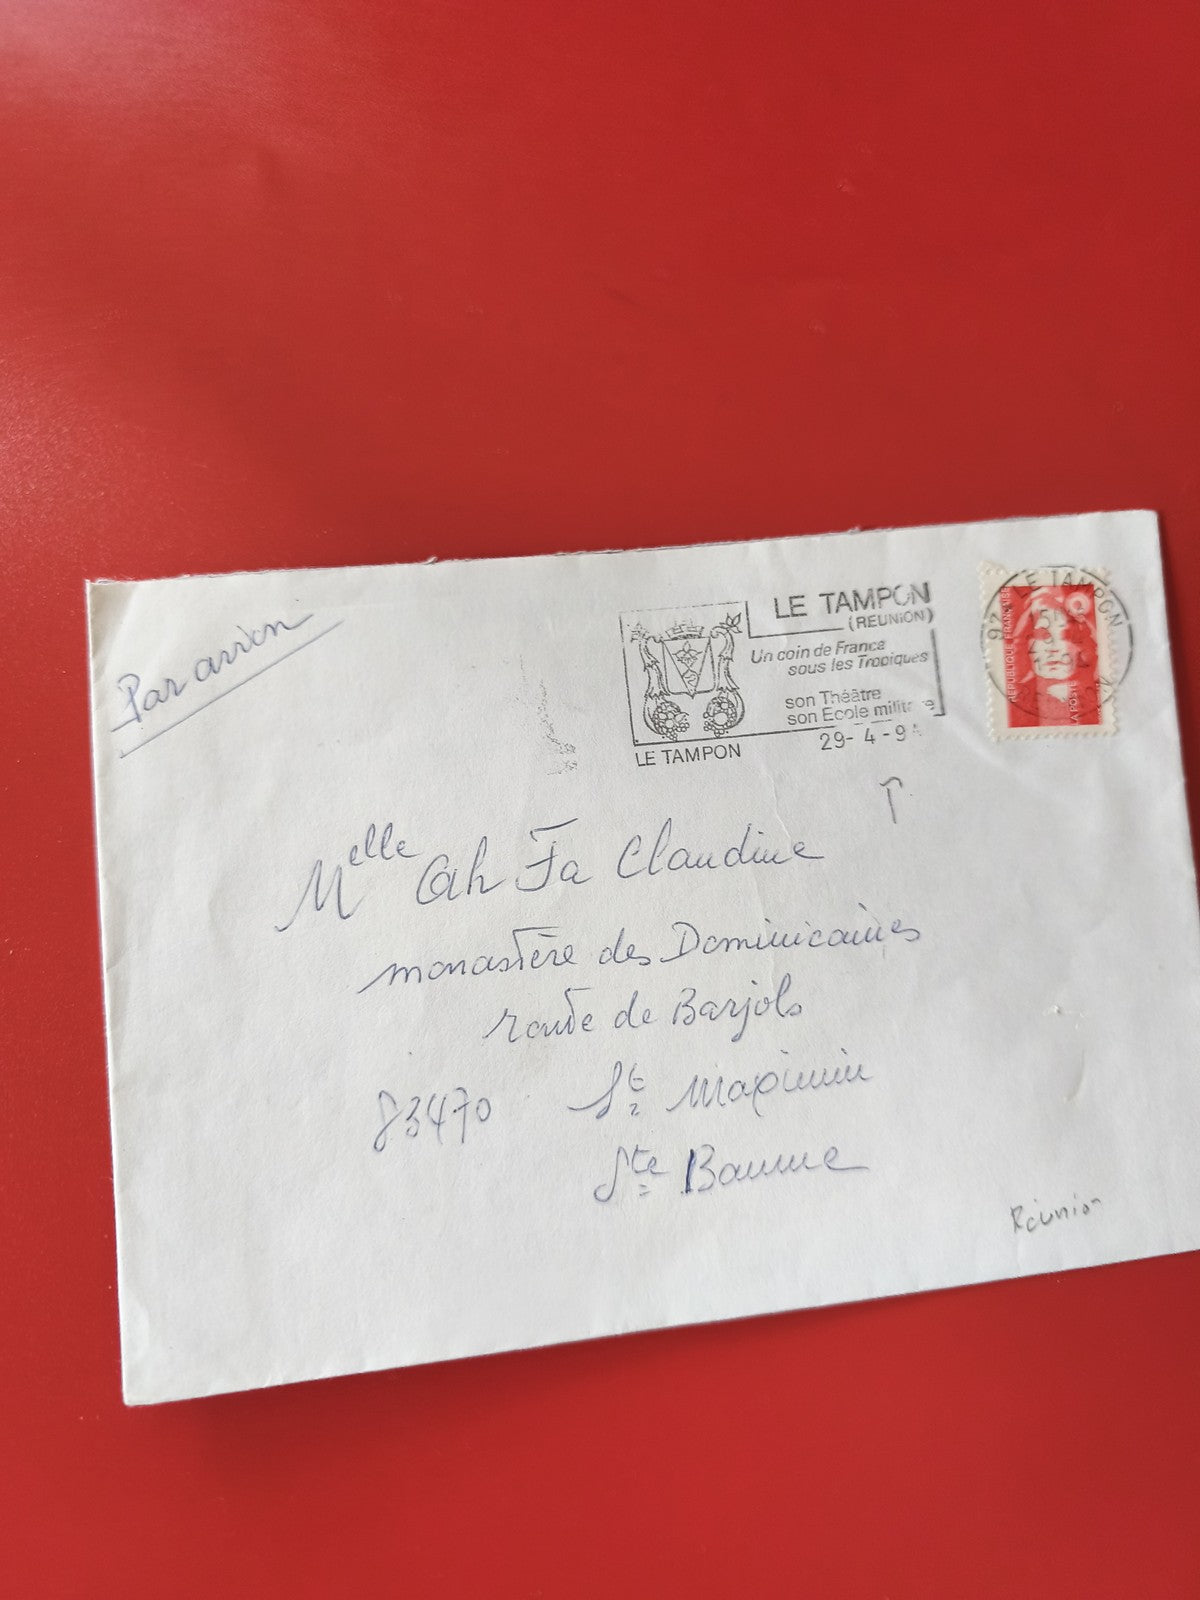 Par avion
LE TAMPON
(REUNION)
Un coin de France
sous les Tropiques
son Théâtre
son Ecole militaire
29- 4 -9
LE TAMPON
LE TAMPON
REPUBLIQUE FRANÇAISE
LA POSTE
Melle Ah Fa Claudine
monastère des Dominicaines
route de Barjols
83470 St Maximin
Ste Baume
Réunion